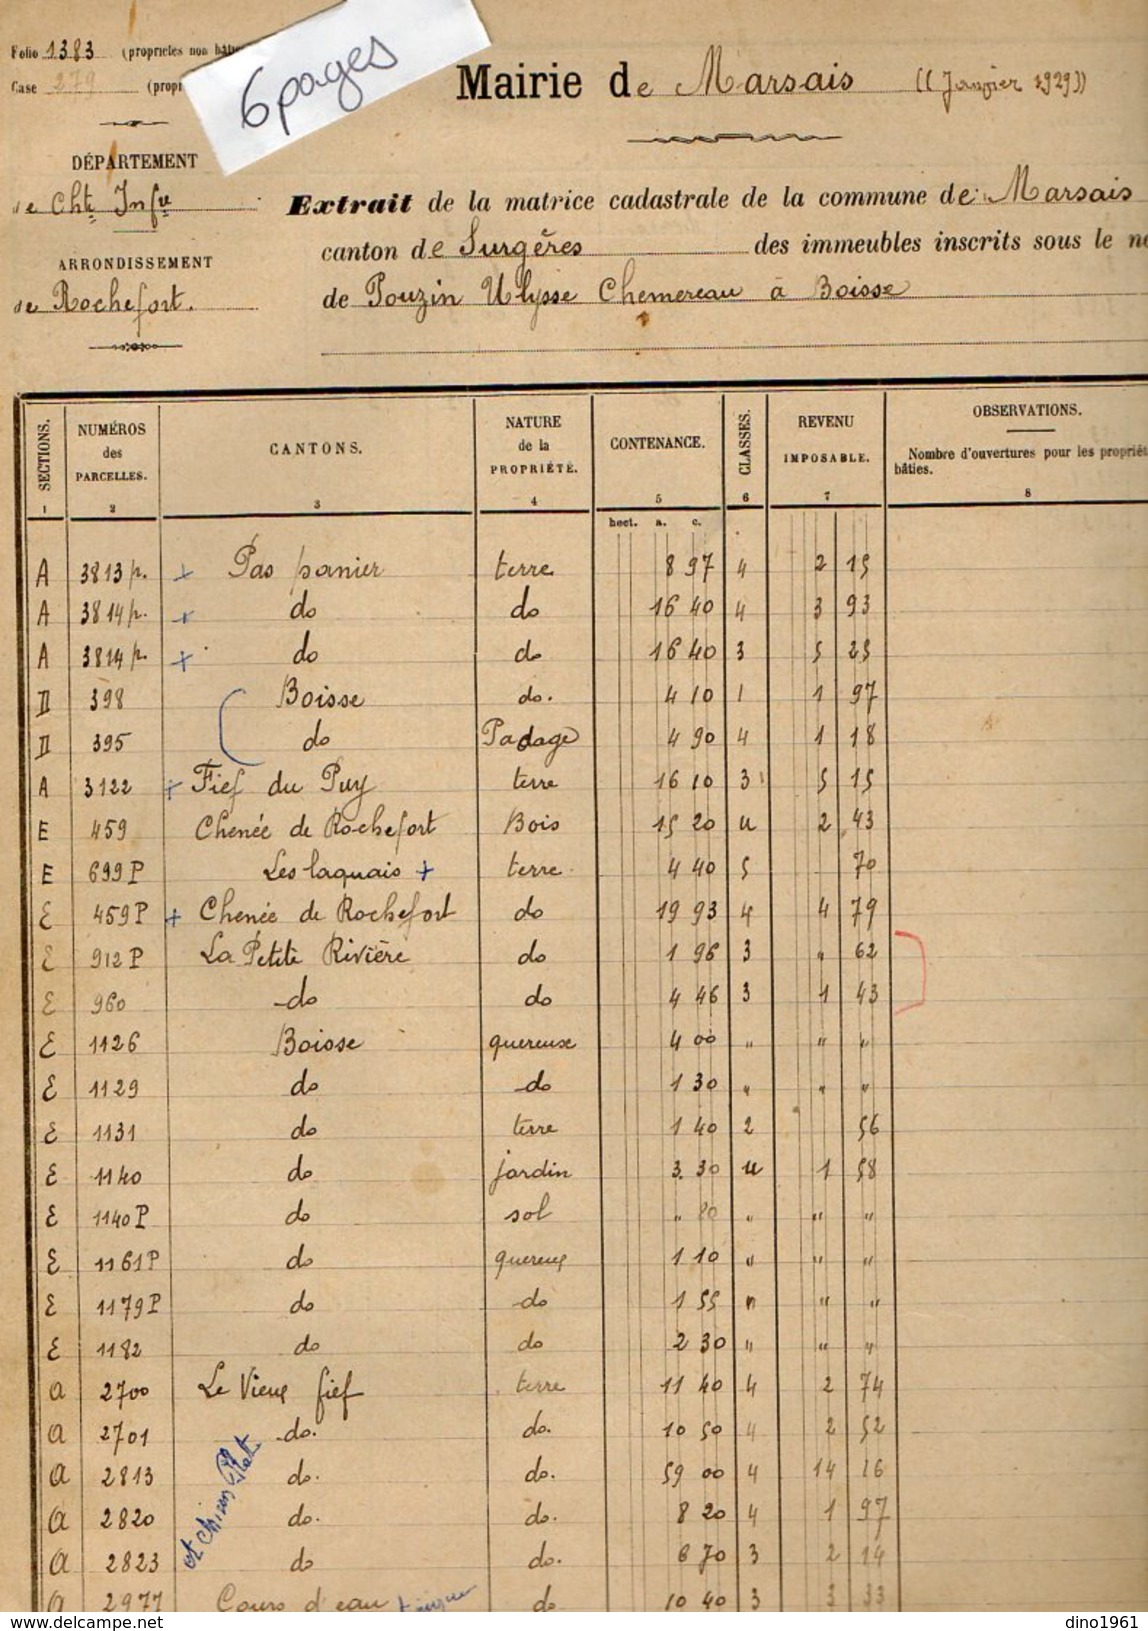 Folio 1383 (propriétés non bâti
Case 279 (propri
6 pages
Mairie de Marsais ((Janvier 1929))
DÉPARTEMENT
de Chte Infre
ARRONDISSEMENT
de Rochefort.
Extrait de la matrice cadastrale de la commune de Marsais
canton de Surgères des immeubles inscrits sous le no
de Pouzin Ulysse Chemereau à Boisse
SECTIONS. NUMÉROS des PARCELLES. CANTONS. NATURE de la PROPRIÉTÉ. CONTENANCE. CLASSES. REVENU IMPOSABLE. OBSERVATIONS.
Nombre d'ouvertures pour les propriét
bâties.
1 2 3 4 5 6 7 8
hect. a. c.
A 3813 p. + Pas panier terre 8 97 4 2 15
A 3814 p. + do do 16 40 4 3 93
A 3814 p. + do do 16 40 3 5 25
D 398 Boisse do. 4 10 1 1 97
D 395 do Padage 4 90 4 1 18
A 3122 + Fief du Puy terre 16 10 3 5 15
E 459 Chenée de Rochefort Bois 15 20 u 2 43
E 699 P Les laquais + terre 4 40 5 70
E 459 P + Chenée de Rochefort do 19 93 4 4 79
E 912 P La Petite Rivière do 1 96 3 " 62
E 960 do do 4 46 3 1 43
E 1126 Boisse quereuse 4 00 " " "
E 1129 do do 1 30 " " "
E 1131 do terre 1 40 2 56
E 1140 do jardin 3 30 u 1 58
E 1140 P do sol " 80 " " "
E 1161 P do quereux 1 10 " " "
E 1179 P do do 1 55 " " "
E 1182 do do 2 30 " " "
a 2700 Le Vieux fief terre 11 40 4 2 74
a 2701 do. do. 10 50 4 2 52
a 2813 do. do. 59 00 4 14 16
a 2820 do. do. 8 20 4 1 97
a 2823 do do. 6 70 3 2 14
a 2977 Cours d'eau do 10 40 3 3 33
dino1961